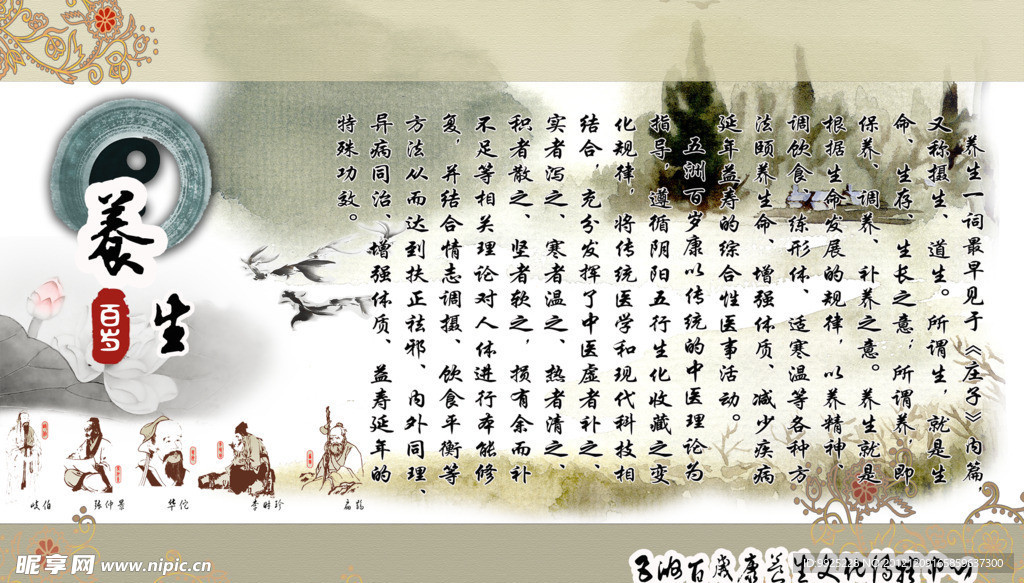 养生
百岁
养生一词最早见于《庄子》内篇，
又称摄生、道生。所谓生，就是生
命、生存、生长之意；所谓养，即
保养、调养、补养之意。养生就是
根据生命发展的规律，以养精神、
调饮食、练形体、适寒温等各种方
法颐养生命、增强体质、减少疾病
延年益寿的综合性医事活动。
五洲百岁康以传统的中医理论为
指导，遵循阴阳五行生化收藏之变
化规律，将传统医学和现代科技相
结合 充分发挥了中医虚者补之、
实者泻之、寒者温之、热者清之、
积者散之、坚者软之，损有余而补
不足等相关理论对人体进行本能修
复，并结合情志调摄、饮食平衡等
方法从而达到扶正祛邪、内外同理、
异病同治、增强体质、益寿延年的
特殊功效。
岐伯
张仲景
华佗
李时珍
扁鹊
昵享网 www.nipic.cn